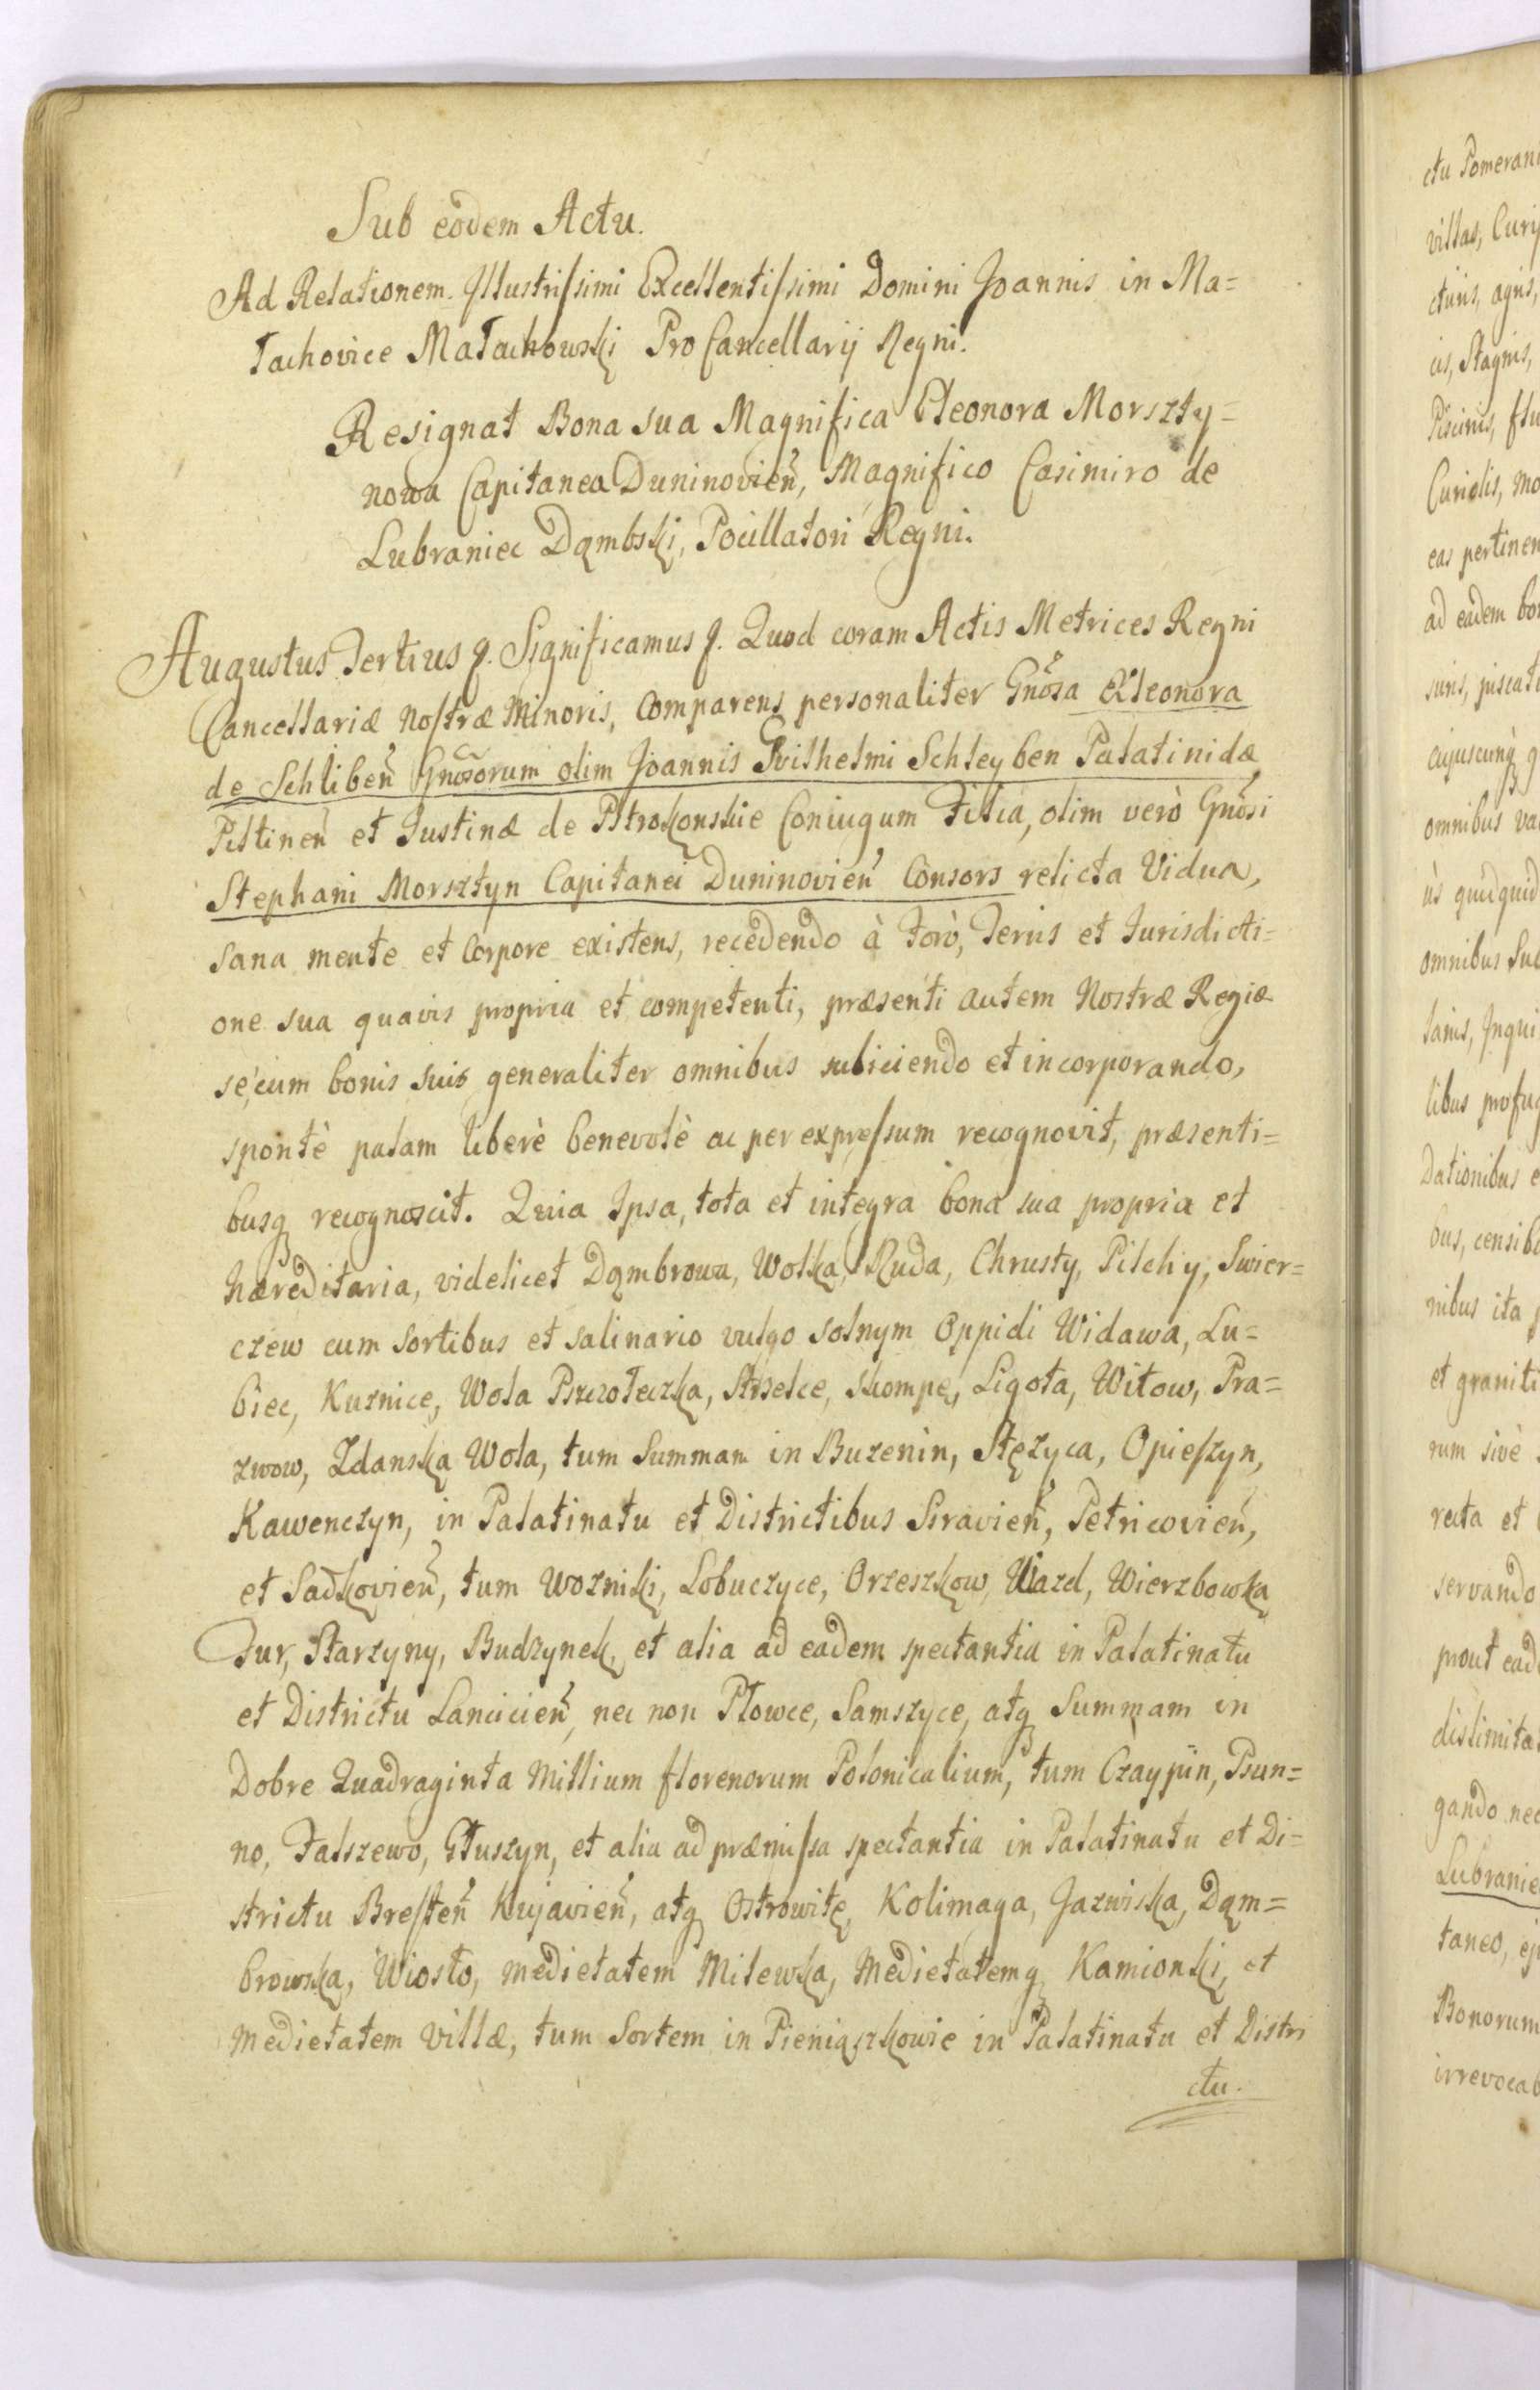 Sub eodem Actu.
Ad Relationem Illustrissimi Excellentissimi Domini Joannis in Ma=
łachovice Małachowski Pro Cancellarij Regni.
Resignat Bona sua Magnifica Eleonora Morszty=
nowa Capitanea Duninovień, Magnifico Casimiro de
Lubraniec Dąmbski, Pocillatori Regni.
Augustus Tertius &. Significamus &. Quod coram Actis Metrices Regni
Cancellariæ Nostræ Minoris, comparens personaliter Gnosa Eleonora
de Schliben Gnosorum olim Joannis Wilhelmi Schleyben Palatinidæ
Piltineń et Justinæ de Pstrokonskie Coniugum Filia, olim verò Gnosi
Stephani Morsztyn Capitanei Duninovień Consors relicta Vidua,
sana mente et corpore existens, recedendo à forò, Terris et Jurisdicti=
one sua quavis propria et competenti, præsenti autem Nostræ Regiæ
se, cum bonis suis generaliter omnibus subiiciendo et incorporando,
spontè palam liberè benevolè ac per expressum recognovit, præsenti=
busq recognoscit. Quia Ipsa, tota et integra bona sua propria et
hæreditaria, videlicet Dąmbrowa, Wolka, Ruda, Chrusty, Pilchy, Swier=
czew cum sortibus et salinario vulgo solnym Oppidi Widawa, Lu=
biec, Kuznice, Wola Pszczołeczka, Strzelce, Skompe, Ligota, Witow, Pra=
zwow, Zdanska Wola, tum Summam in Buzenin, Stęzyca, Opieszyn,
Kawenczyn, in Palatinatu et Districtibus Siravień, Petricovień,
et Sadkovień, tum Wozniki, Lobuczyce, Orzeszkow, Uiazd, Wierzbowka
Tur, Starzyny, Budzynek, et alia ad eadem spectantia in Palatinatu
et Districtu Lancicień, nec non Płowce, Samszyce, atq Summam in
Dobre Quadraginta Millium florenorum Polonicalium, tum Czaypin, Psun=
no, Falszewo, Głuszyn, et alia ad præmissa spectantia in Palatinatu et Di=
strictu Bresteń Kujavień, atq Ostrowitę, Kolimaga, Jazwiska, Dąm=
browska, Wiosło, medietatem Milewka, Medietatemq Kamionki, et
Medietatem Villæ, tum Sortem in Pieniąszkowie in Palatinatu et Distri
ctu.
ctu Pomerani
villas, Curij
cturis, agris,
cis, Stagnis,
Piscinis, flu
eas pertinen
ad eadem bon
cujuscunq q
omnibus va
ùs quidquid
omnibus Suc
Dationibus e
bus, censib
nibus ita p
et graniti
rum sivè
recta et
servando
prout ead
dislimita
gando nec
Lubranie
taneo, ej
Bonorum
irrevocab